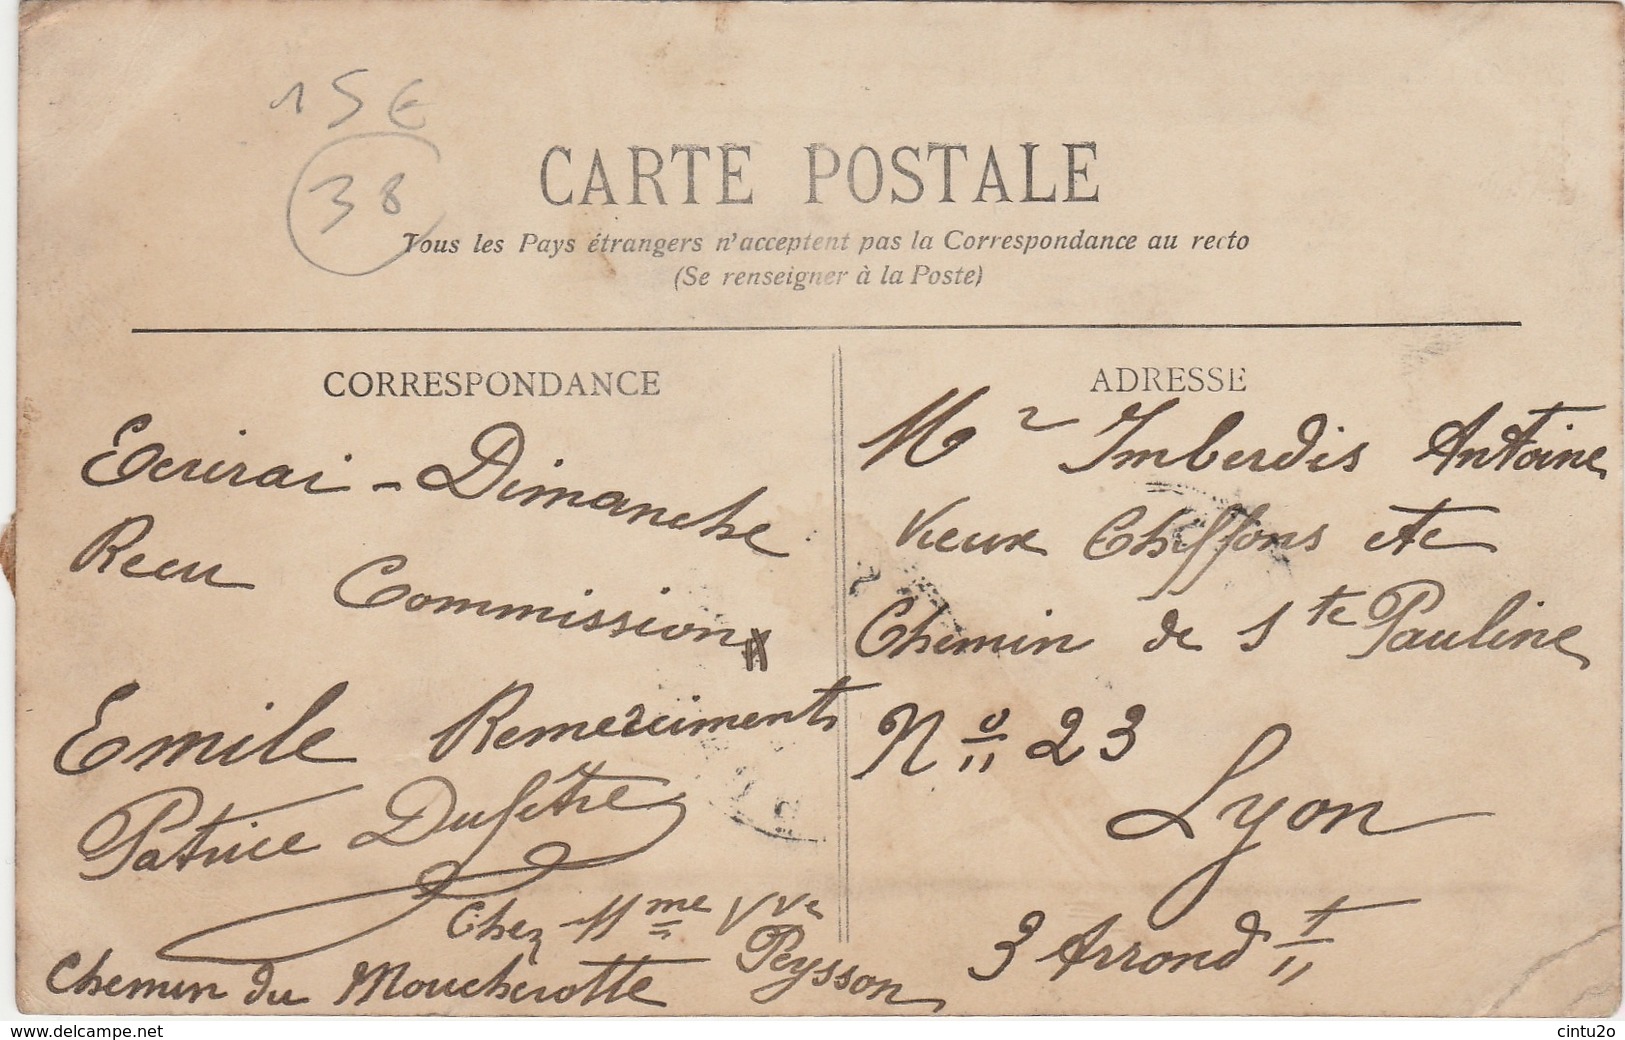 15€
38
CARTE POSTALE
Tous les Pays étrangers n'acceptent pas la Correspondance au recto
(Se renseigner à la Poste)
CORRESPONDANCE
Ecrirai - Dimanche
Recu Commission
Emile Remerciments
Patrice Dufêtre
Chez Mme Vve
Peysson
Chemin du Moucherotte
ADRESSE
Mr Imberdis Antoine
Vieux Chiffons etc
Chemin de Ste Pauline
No 23
Lyon
3 Arrondt
www.delcampe.net
cintu2o